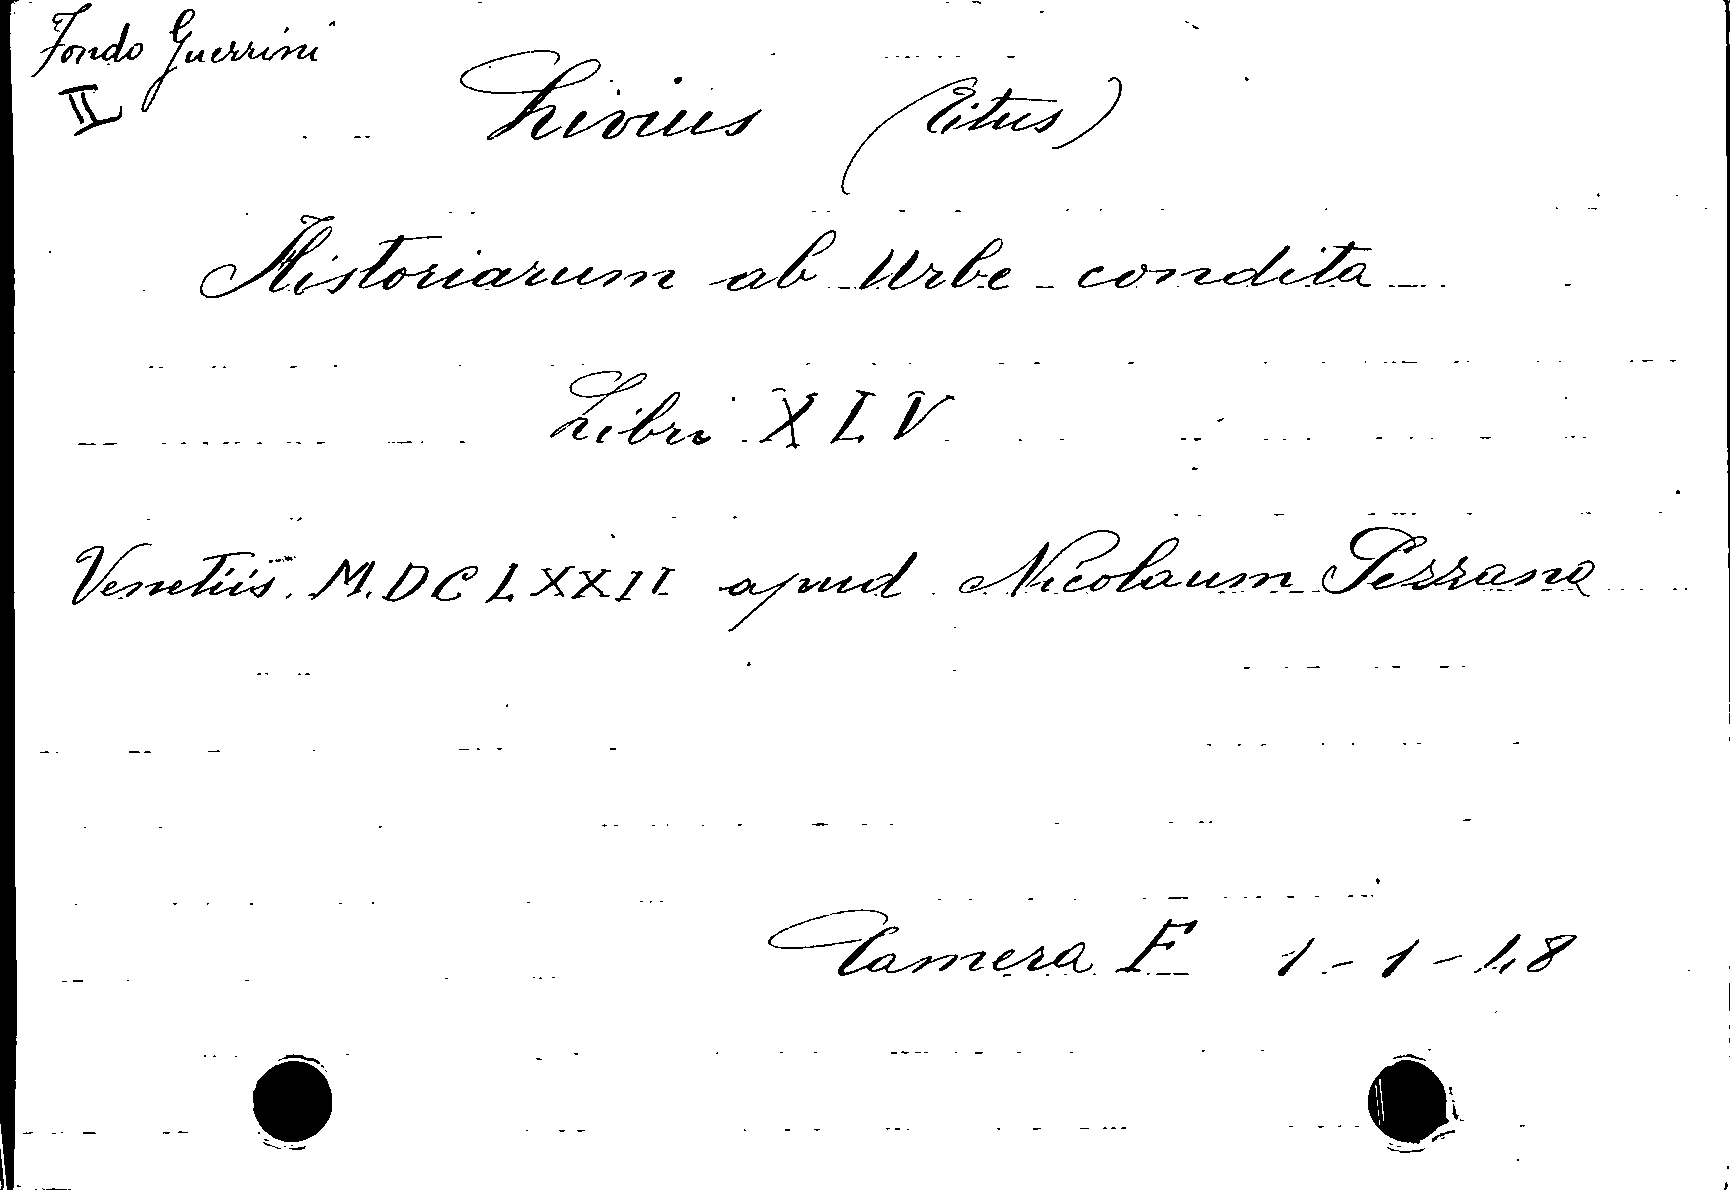 Fondo Guerrini
II
Livius (Titus)
Historiarum ab Urbe condita
Libri XLV
Venetiis. M.DCLXXII apud Nicolaum Pezzana
Camera F 1-1-48